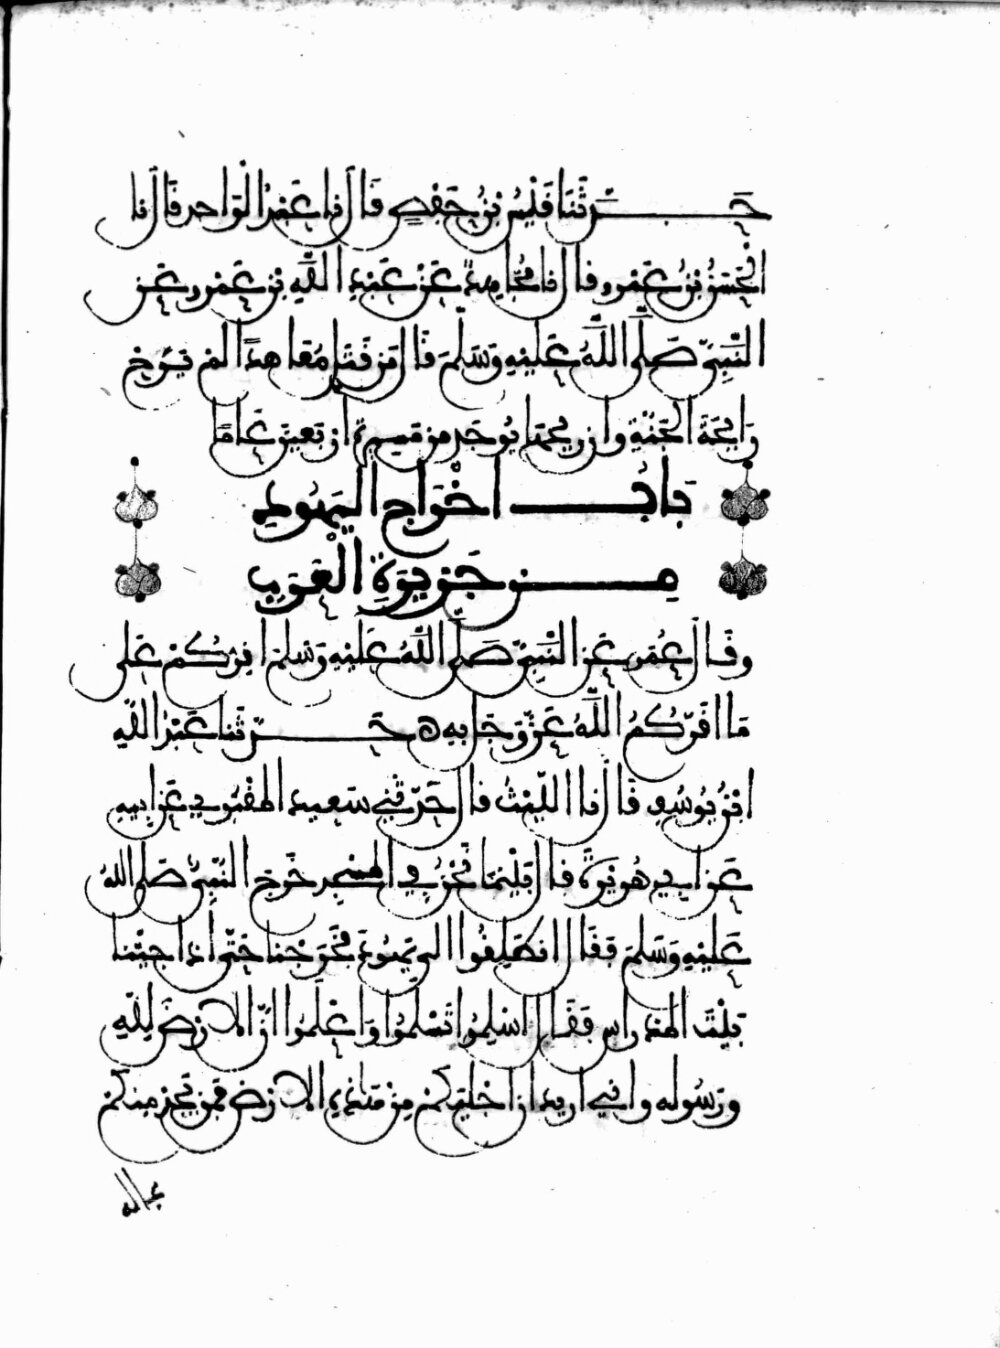 حَدَّثَنَا قَيْسُ بْنُ حَفْصٍ قَالَ نا عَبْدُ الْوَاحِدِ قَالَ نا
الْحَسَنُ بْنُ عَمْرٍو قال نا مُجَاهِدٌ عَنْ عَبْدِ اللَّهِ بْنِ عَمْرٍو عَنِ
النَّبِيِّ صَلَّى اللَّهُ عَلَيْهِ وَسَلَّمَ قَالَ مَنْ قَتَلَ مُعَاهدًا لَمْ يَرَحْ
رَايحَةَ الْجَنَّةِ وان ريحَهَا يُوجَد من مَسِيرَةِ أَرْبَعِينَ عَامًا
بَابُ اخْرَاجِ الْيَهُودِ
مِنْ جَزِيرَةِ الْعَرَبِ
وقَالَ عُمَرُ عَنِ النَّبِيِّ صَلَّى اللَّهُ عَلَيْهِ وَسَلم اقِرُّكُمْ عَلَى
مَا اقَرَّكُمُ اللَّهُ عَزَّ وَجَل بِهِ ه حَدَّثنا عَبْدُ اللَّهِ
ابْنُ يُوسُفَ قَالَ نا اللَّيْثُ قال حَدَّثَنِي سَعِيدٌ الْمَقْبُرِي عَن ابِيهِ
عَن ابِي هُرَيْرَةَ قَالَ بَيْنَمَا نَحْنُ فِي الْمَسْجِدِ خَرَجَ النَّبِيُّ صَلى اللهُ
عَلَيْهِ وَسَلَّمَ فَقَالَ انْطَلِقُوا الى يَهُودَ فَخَرَجْنا حَتَّى اذَا جِيْنَا
بَيْتَ الْمِدْرَاسِ فَقَالَ اسْلِمُوا تَسْلَمُوا وَاعْلَمُوا انَّ الارْضَ لِلَّهِ
وَرَسُولِه وَانِّي ارِيدُ ان اجْلِيَكُمْ مِنْ هَذِهِ الارْضِ فَمَن يَجِدْ مِنكُمْ
بماله